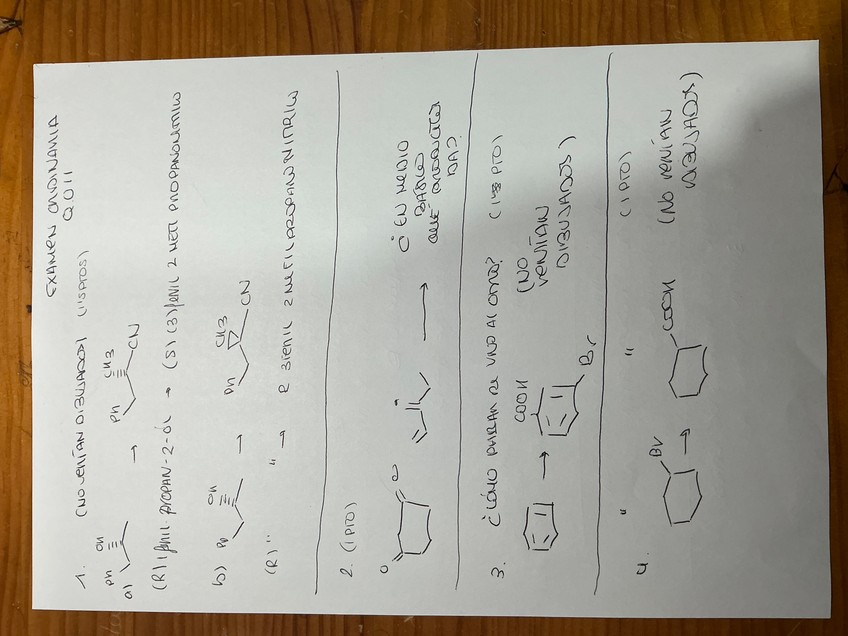 EXAMEN ORDINARIA
QOII
1. (NO VENÍAN DIBUJADOS) (1'5 PTOS)
a) Ph OH → Ph CH3 CN
(R) 1 fenil propan-2-ol → (S) (3) fenil 2 metil propanonitrilo
b) Ph OH → Ph CH3 CN
(R) " " → R 3 fenil 2 metil propanonitrilo
2. (1 PTO)
O O → ¿EN MEDIO
BÁSICO
QUÉ PRODUCTOS
DA?
3. ¿CÓMO PASAR DE UNO AL OTRO? (
→ COOH Br (NO
VENÍAN
DIBUJADOS)
4. " " (1 PTO)
Br → COOH (NO VENÍAN
DIBUJADOS)